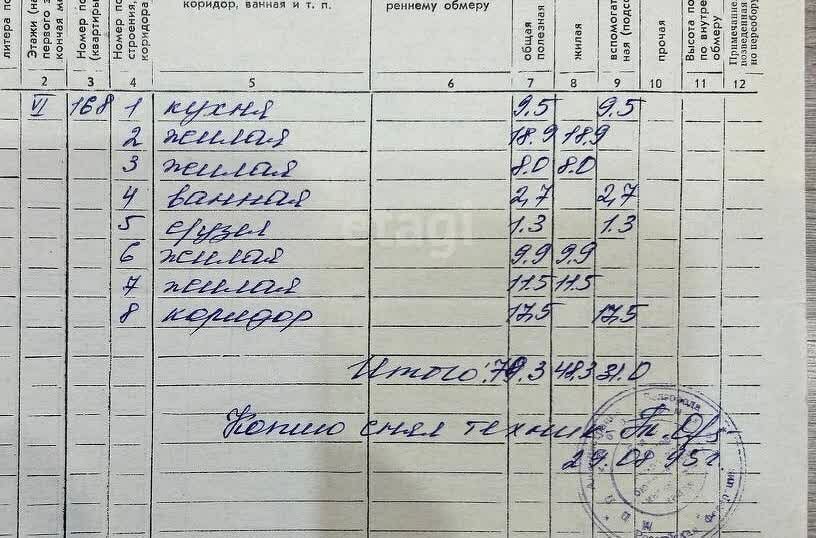 литера по
Этажи (на
первого э
кончая м
Номер по
(квартиры
Номер по
строения,
коридора
коридор, ванная и т. п.
реннему обмеру
общая
полезная
жилая
вспомогат
ная (подсо
прочая
Высота по
по внутре
обмеру
Примечание.
возведенная
но переобор
2 3 4 5 6 7 8 9 10 11 12
VI 168 1 кухня 9.5 9.5
2 жилая 18.9 18.9
3 жилая 8.0 8.0
4 ванная 2,7 2,7
5 с/узел 1.3 1.3
etagi
6 жилая 9.9 9.9
7 жилая 11.5 11.5
8 коридор 17,5 17,5
Итого: 79.3 48,3 31.0
Копию снял техник
29.08.95г.